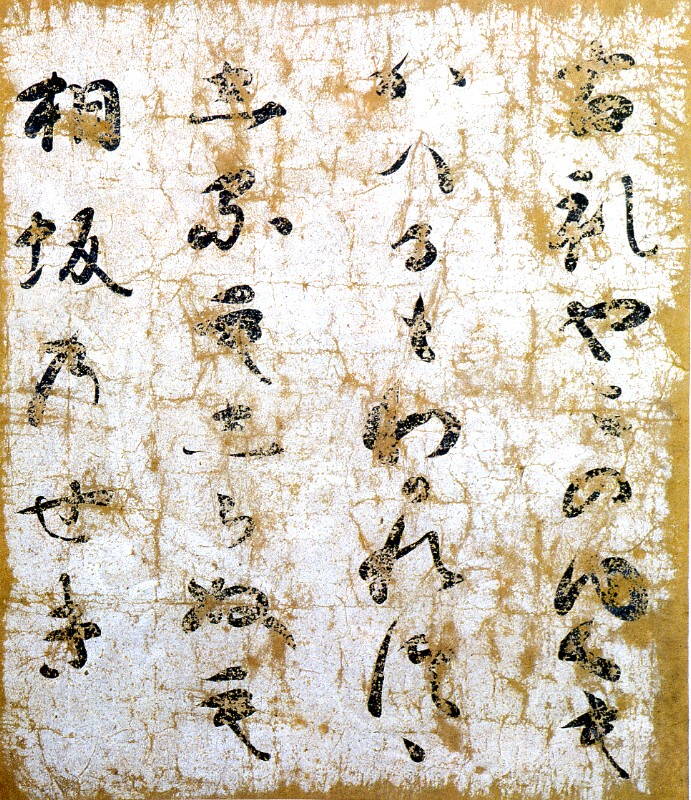 これやこのゆくも
かへるもわかれつゝ
しるもしらぬも
相坂乃せき